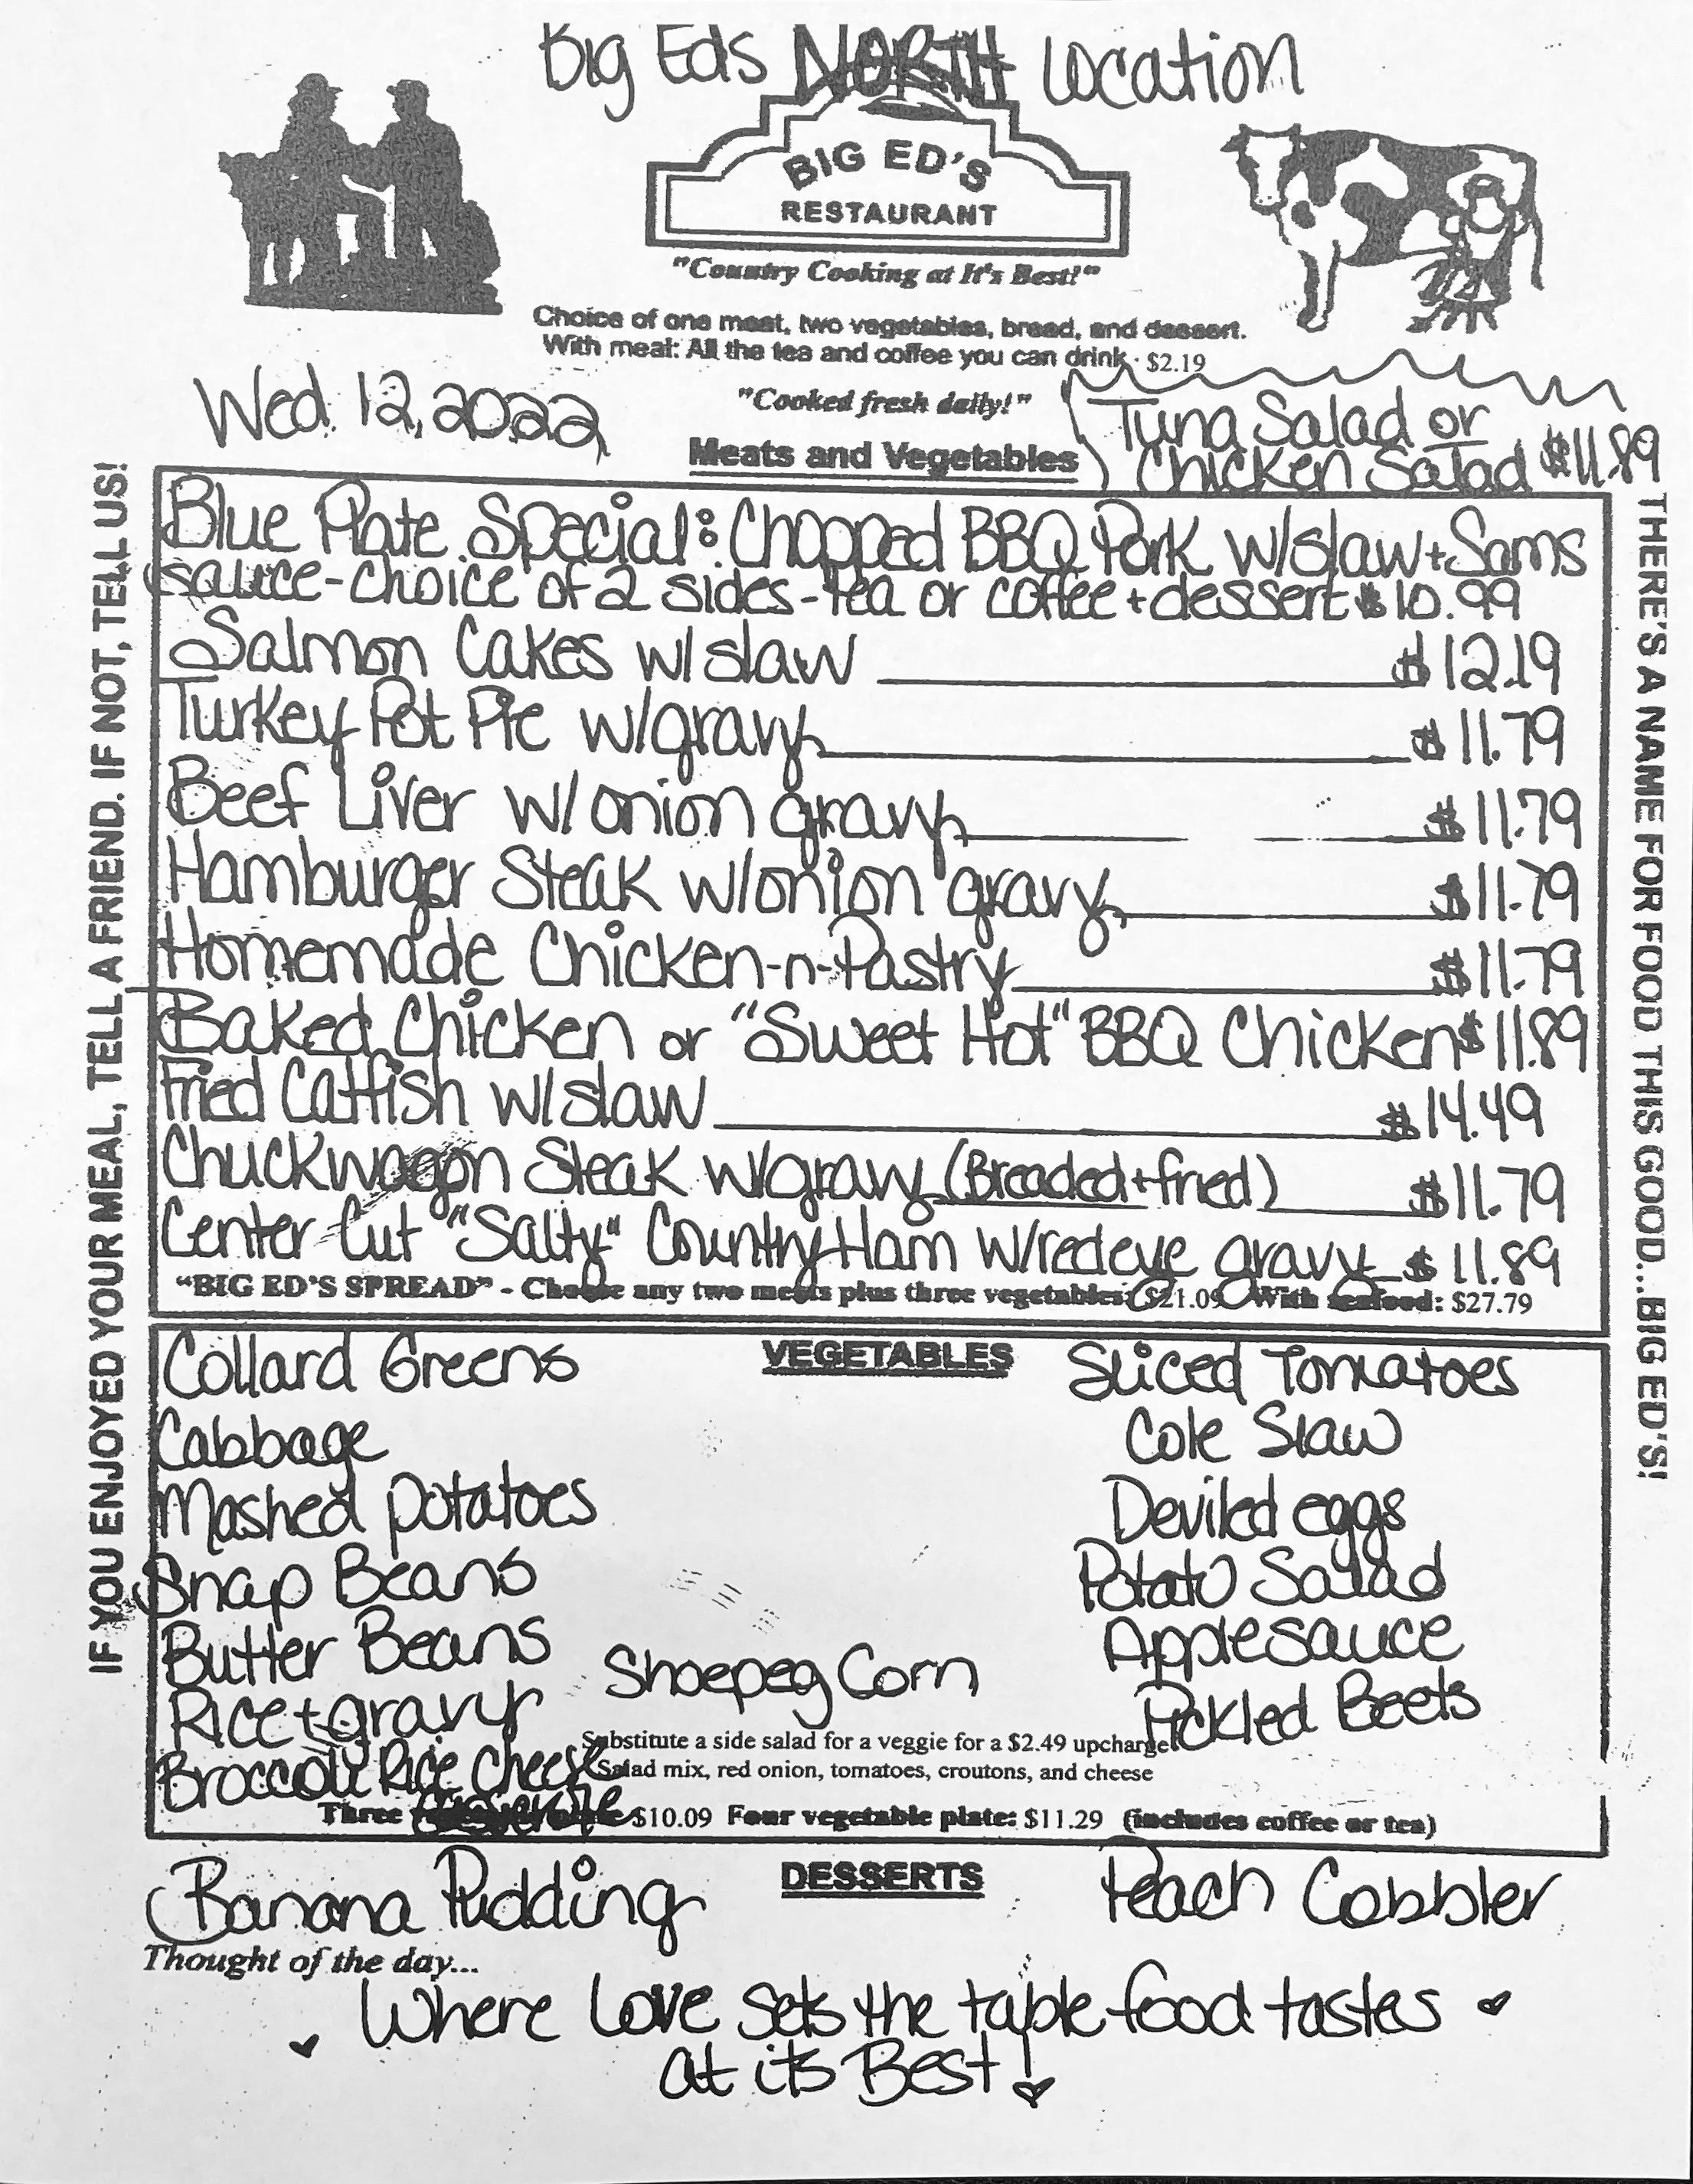 Big Eds NORTH Location
BIG ED'S
RESTAURANT
"Country Cooking at It's Best!"
Choice of one meat, two vegetables, bread, and dessert.
With meal: All the tea and coffee you can drink - $2.19
Wed. 12, 2022
"Cooked fresh daily!"
Meats and Vegetables
Tuna Salad or
Chicken Salad $11.89
IF YOU ENJOYED YOUR MEAL, TELL A FRIEND. IF NOT, TELL US!
Blue Plate Special: Chopped BBQ Pork w/slaw + Sams
sauce - choice of 2 sides - tea or coffee + dessert $10.99
Salmon Cakes w/slaw $12.19
Turkey Pot Pie w/gravy $11.79
Beef Liver w/onion gravy $11.79
Hamburger Steak w/onion gravy $11.79
Homemade Chicken-n-Pastry $11.79
Baked Chicken or "Sweet Hot" BBQ Chicken $11.89
Fried Catfish w/slaw $14.49
Chuckwagon Steak w/gravy (Breaded + fried) $11.79
Center Cut "Salty" Country Ham w/redeye gravy $11.89
"BIG ED'S SPREAD" - Choose any two meats plus three vegetables: $21.09 With seafood: $27.79
THERE'S A NAME FOR FOOD THIS GOOD...BIG ED'S!
VEGETABLES
Collard Greens
Cabbage
Mashed potatoes
Snap Beans
Butter Beans
Rice + gravy
Broccoli Rice Cheese
Casserole
Shoepeg Corn
Sliced Tomatoes
Cole Slaw
Deviled eggs
Potato Salad
Applesauce
Pickled Beets
Substitute a side salad for a veggie for a $2.49 upcharge
Salad mix, red onion, tomatoes, croutons, and cheese
Three $10.09 Four vegetable plate: $11.29 (includes coffee or tea)
DESSERTS
Banana Pudding
Peach Cobbler
Thought of the day...
Where Love sets the table food tastes
at its Best!